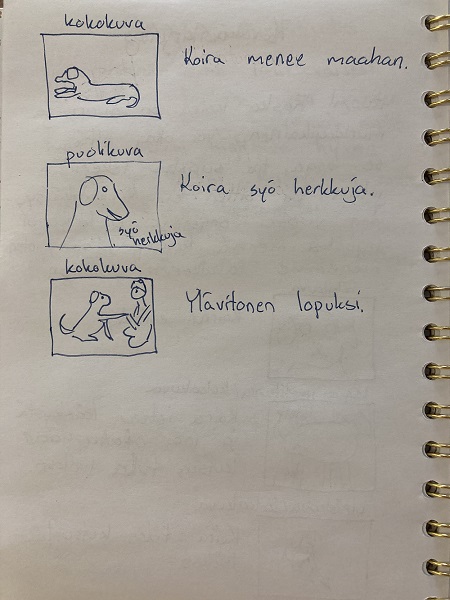 kokokuva
Koira menee maahan.
puolikuva
Koira syö herkkuja.
syö
herkkuja
kokokuva
Ylävitonen lopuksi.